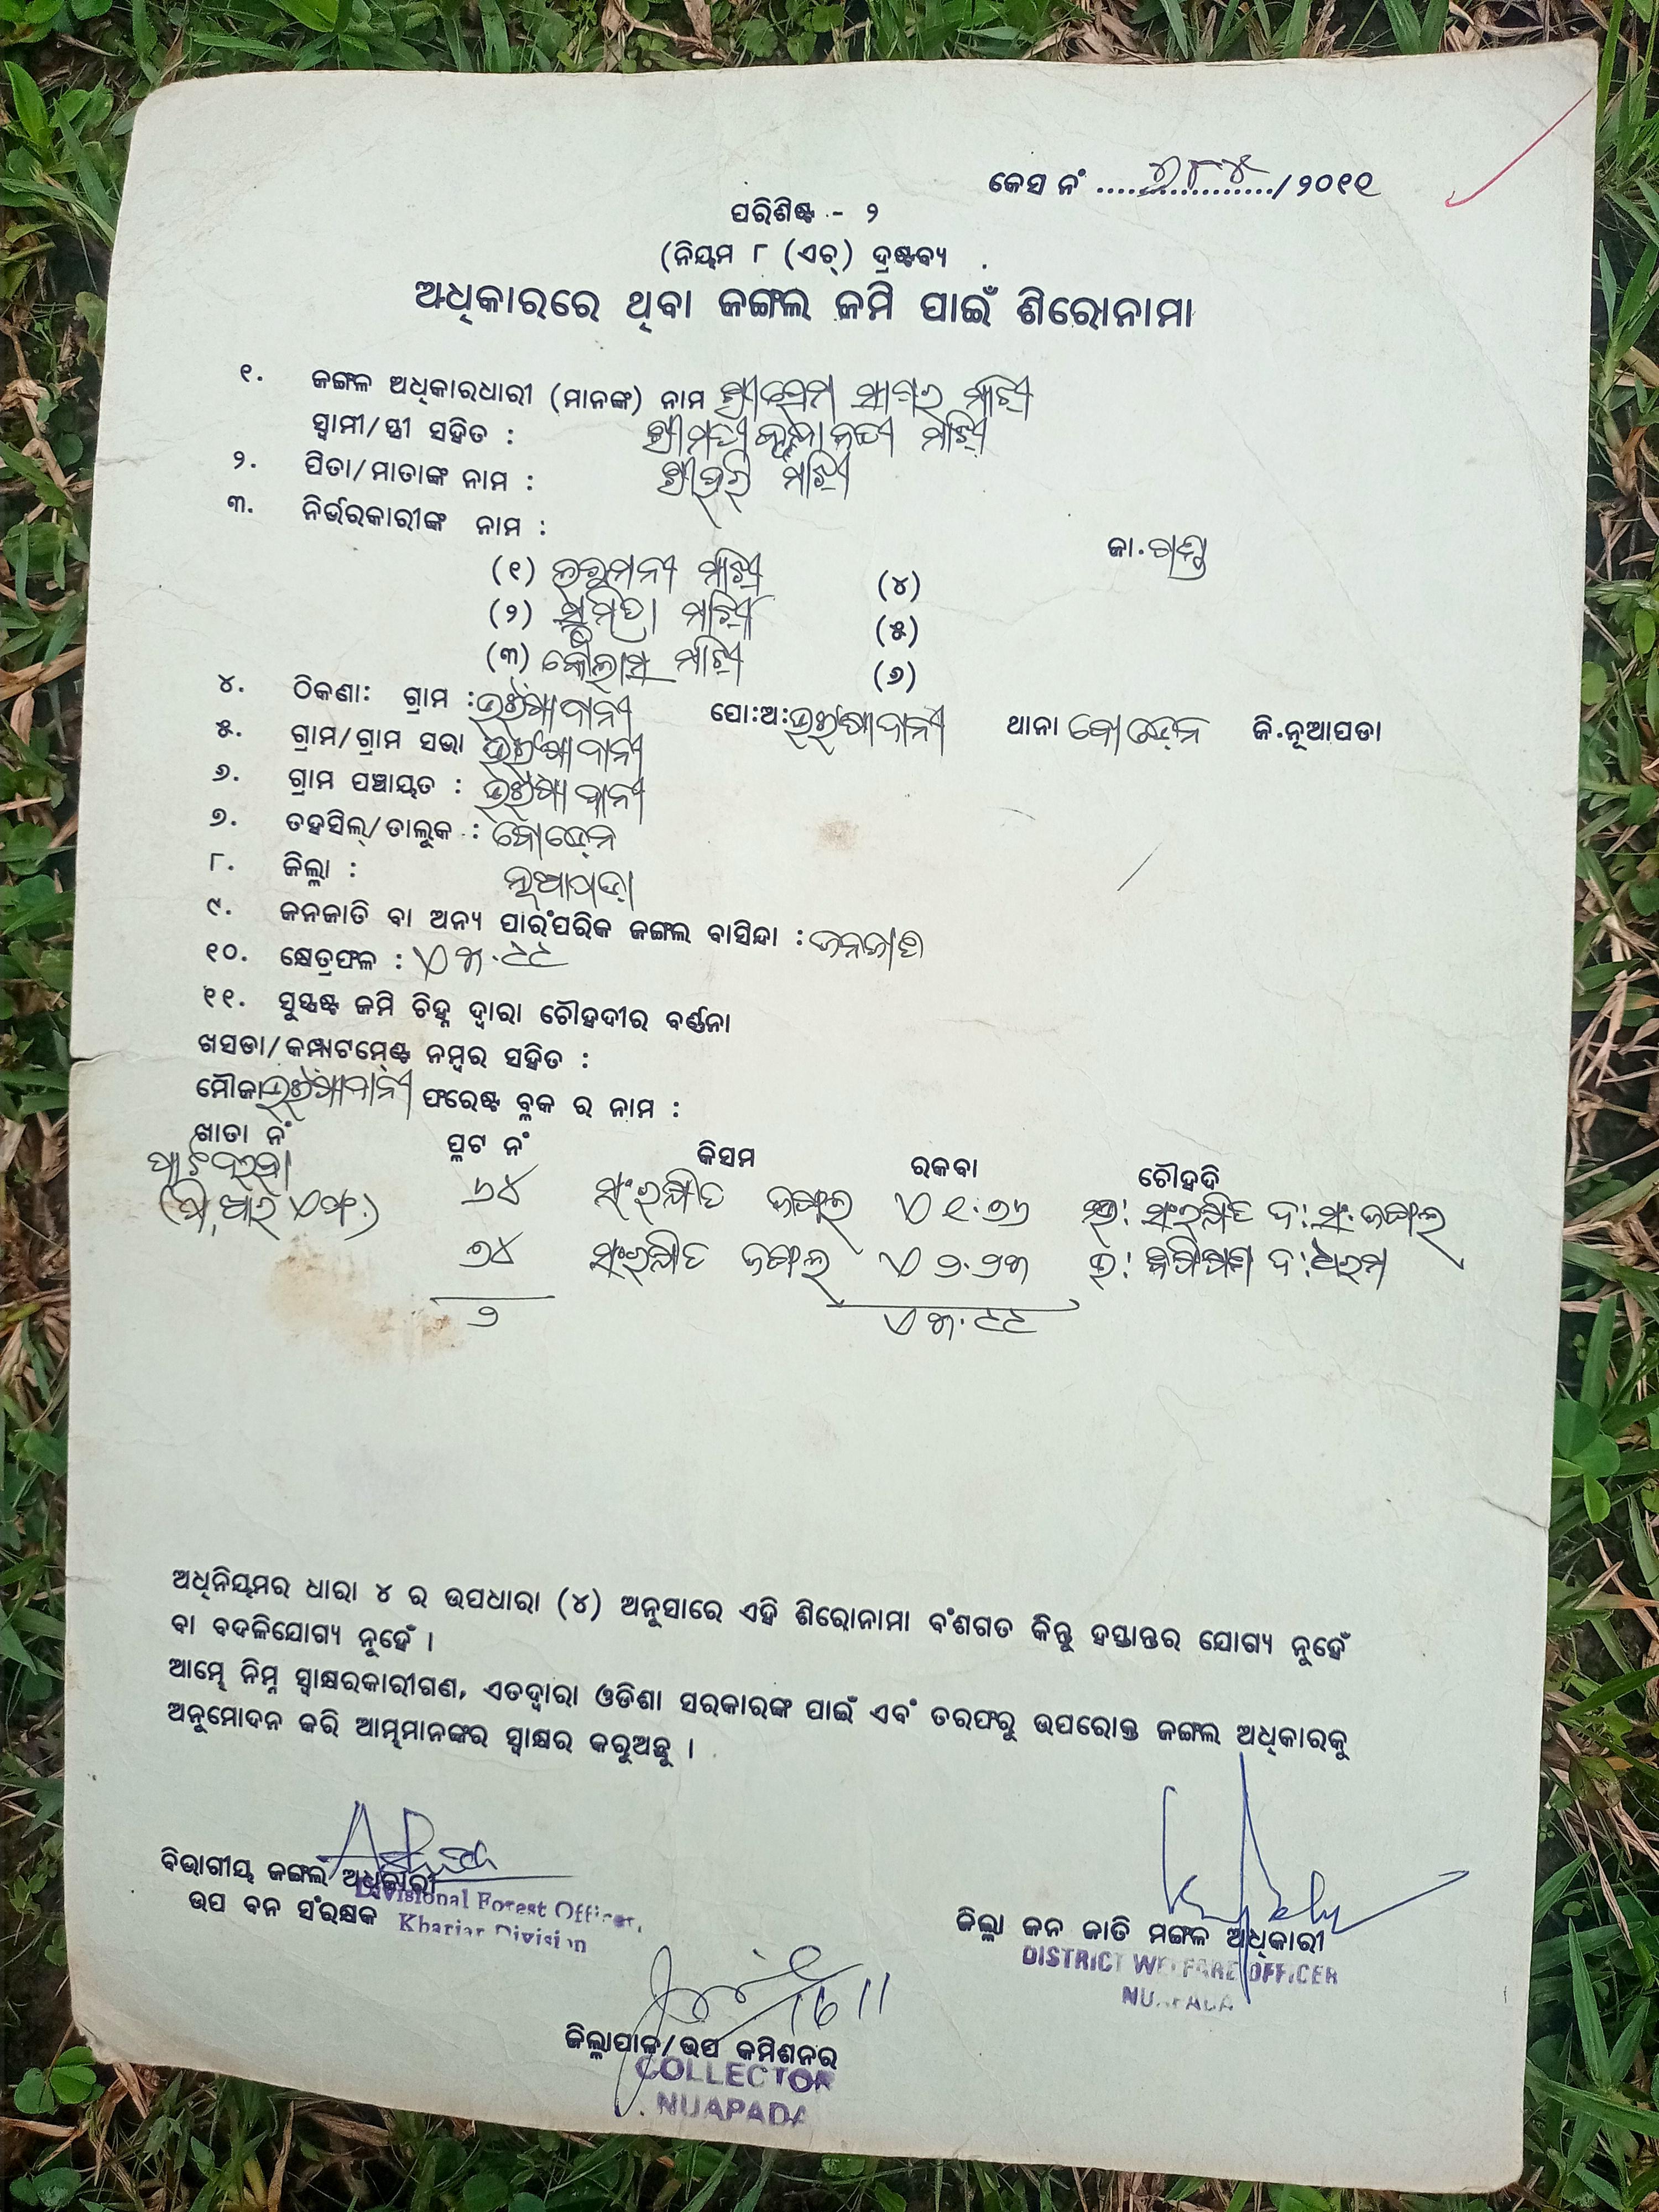 କେସ ନଂ ................/୨୦୧୧
ପରିଶିଷ୍ଟ - ୨
(ନିୟମ ୮ (ଏଚ୍) ଦ୍ରଷ୍ଟବ୍ୟ
ଅଧିକାରରେ ଥିବା ଜଙ୍ଗଲ ଜମି ପାଇଁ ଶିରୋନାମା
୧. ଜଙ୍ଗଳ ଅଧିକାରଧାରୀ (ମାନଙ୍କ) ନାମ ଶ୍ରୀ ପ୍ରେମ ସାଗର ମାଝୀ
ସ୍ୱାମୀ/ସ୍ତ୍ରୀ ସହିତ : ଶ୍ରୀମତୀ ବୃନ୍ଦାବତୀ ମାଝୀ
୨. ପିତା/ମାତାଙ୍କ ନାମ : ଶ୍ରୀ ହରି ମାଝୀ
୩. ନିର୍ଭରକାରୀଙ୍କ ନାମ :
ଜା. ଗଣ୍ଡ
(୧) ମାଝୀ (୪)
(୨) ସୁମିତ୍ରା ମାଝୀ (୫)
(୩) କୈଳାସ ମାଝୀ (୬)
୪. ଠିକଣା: ଗ୍ରାମ : ପୋ:ଅ: ଥାନା ବୋଡେନ ଜି.ନୂଆପଡା
୫. ଗ୍ରାମ/ଗ୍ରାମ ସଭା
୬. ଗ୍ରାମ ପଞ୍ଚାୟତ :
୭. ତହସିଲ୍/ତାଲୁକ : ବୋଡେନ
୮. ଜିଲ୍ଲା : ନୂଆପଡ଼ା
୯. ଜନଜାତି ବା ଅନ୍ୟ ପାରଂପରିକ ଜଙ୍ଗଲ ବାସିନ୍ଦା : ଜନଜାତି
୧୦. କ୍ଷେତ୍ରଫଳ : ଏ ୩.୯୯
୧୧. ସୁସ୍ପଷ୍ଟ ଜମି ଚିହ୍ନ ଦ୍ୱାରା ଚୌହଦୀର ବର୍ଣ୍ଣନା
ଖସଡା/କମ୍ପାଟମେଣ୍ଟ ନମ୍ବର ସହିତ :
ମୌଜା ଫରେଷ୍ଟ ବ୍ଲକ ର ନାମ :
ଖାତା ନଂ ପ୍ଳଟ ନଂ କିସମ ରକବା ଚୌହଦି
(ପି,ଆର ଏଫ.) ୬୪ ସଂରକ୍ଷିତ ଜଙ୍ଗଲ ଏ ୧.୭୬ ଉ: ସଂରକ୍ଷିତ ଦ: ସଂ.ଜଙ୍ଗଲ
୭୪ ସଂରକ୍ଷିତ ଜଙ୍ଗଲ ଏ ୨.୨୩ ଉ: ଦ: ଧରମ
୨ ଏ ୩.୯୯
ଅଧିନିୟମର ଧାରା ୪ ର ଉପଧାରା (୪) ଅନୁସାରେ ଏହି ଶିରୋନାମା ବଂଶଗତ କିନ୍ତୁ ହସ୍ତାନ୍ତର ଯୋଗ୍ୟ ନୁହେଁ
ବା ବଦଳିଯୋଗ୍ୟ ନୁହେଁ ।
ଆମ୍ଭେ ନିମ୍ନ ସ୍ୱାକ୍ଷରକାରୀଗଣ, ଏତଦ୍ଵାରା ଓଡିଶା ସରକାରଙ୍କ ପାଇଁ ଏବଂ ତରଫରୁ ଉପରୋକ୍ତ ଜଙ୍ଗଲ ଅଧିକାରକୁ
ଅନୁମୋଦନ କରି ଆମ୍ଭମାନଙ୍କର ସ୍ୱାକ୍ଷର କରୁଅଛୁ ।
ବିଭାଗୀୟ ଜଙ୍ଗଲ ଅଧିକାରୀ
Divisional Forest Officer,
ଉପ ବନ ସଂରକ୍ଷକ
Khariar Division
ଜିଲ୍ଲା ଜନ ଜାତି ମଙ୍ଗଳ ଅଧିକାରୀ
DISTRICT WELFARE OFFICER
NUAPADA
ଜିଲ୍ଲାପାଳ/ଉପ କମିଶନର
COLLECTOR
NUAPADA